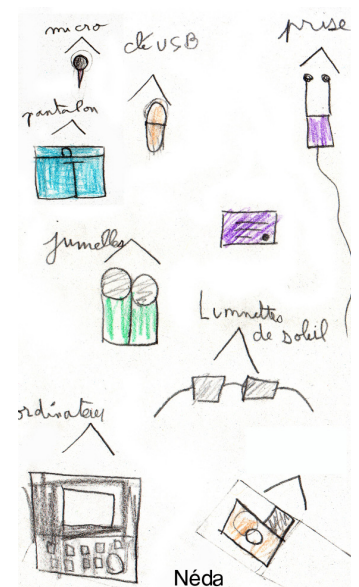 micro
clé USB
prise
pantalon
jumelles
Lumnettes
de soleil
ordinateur
Néda